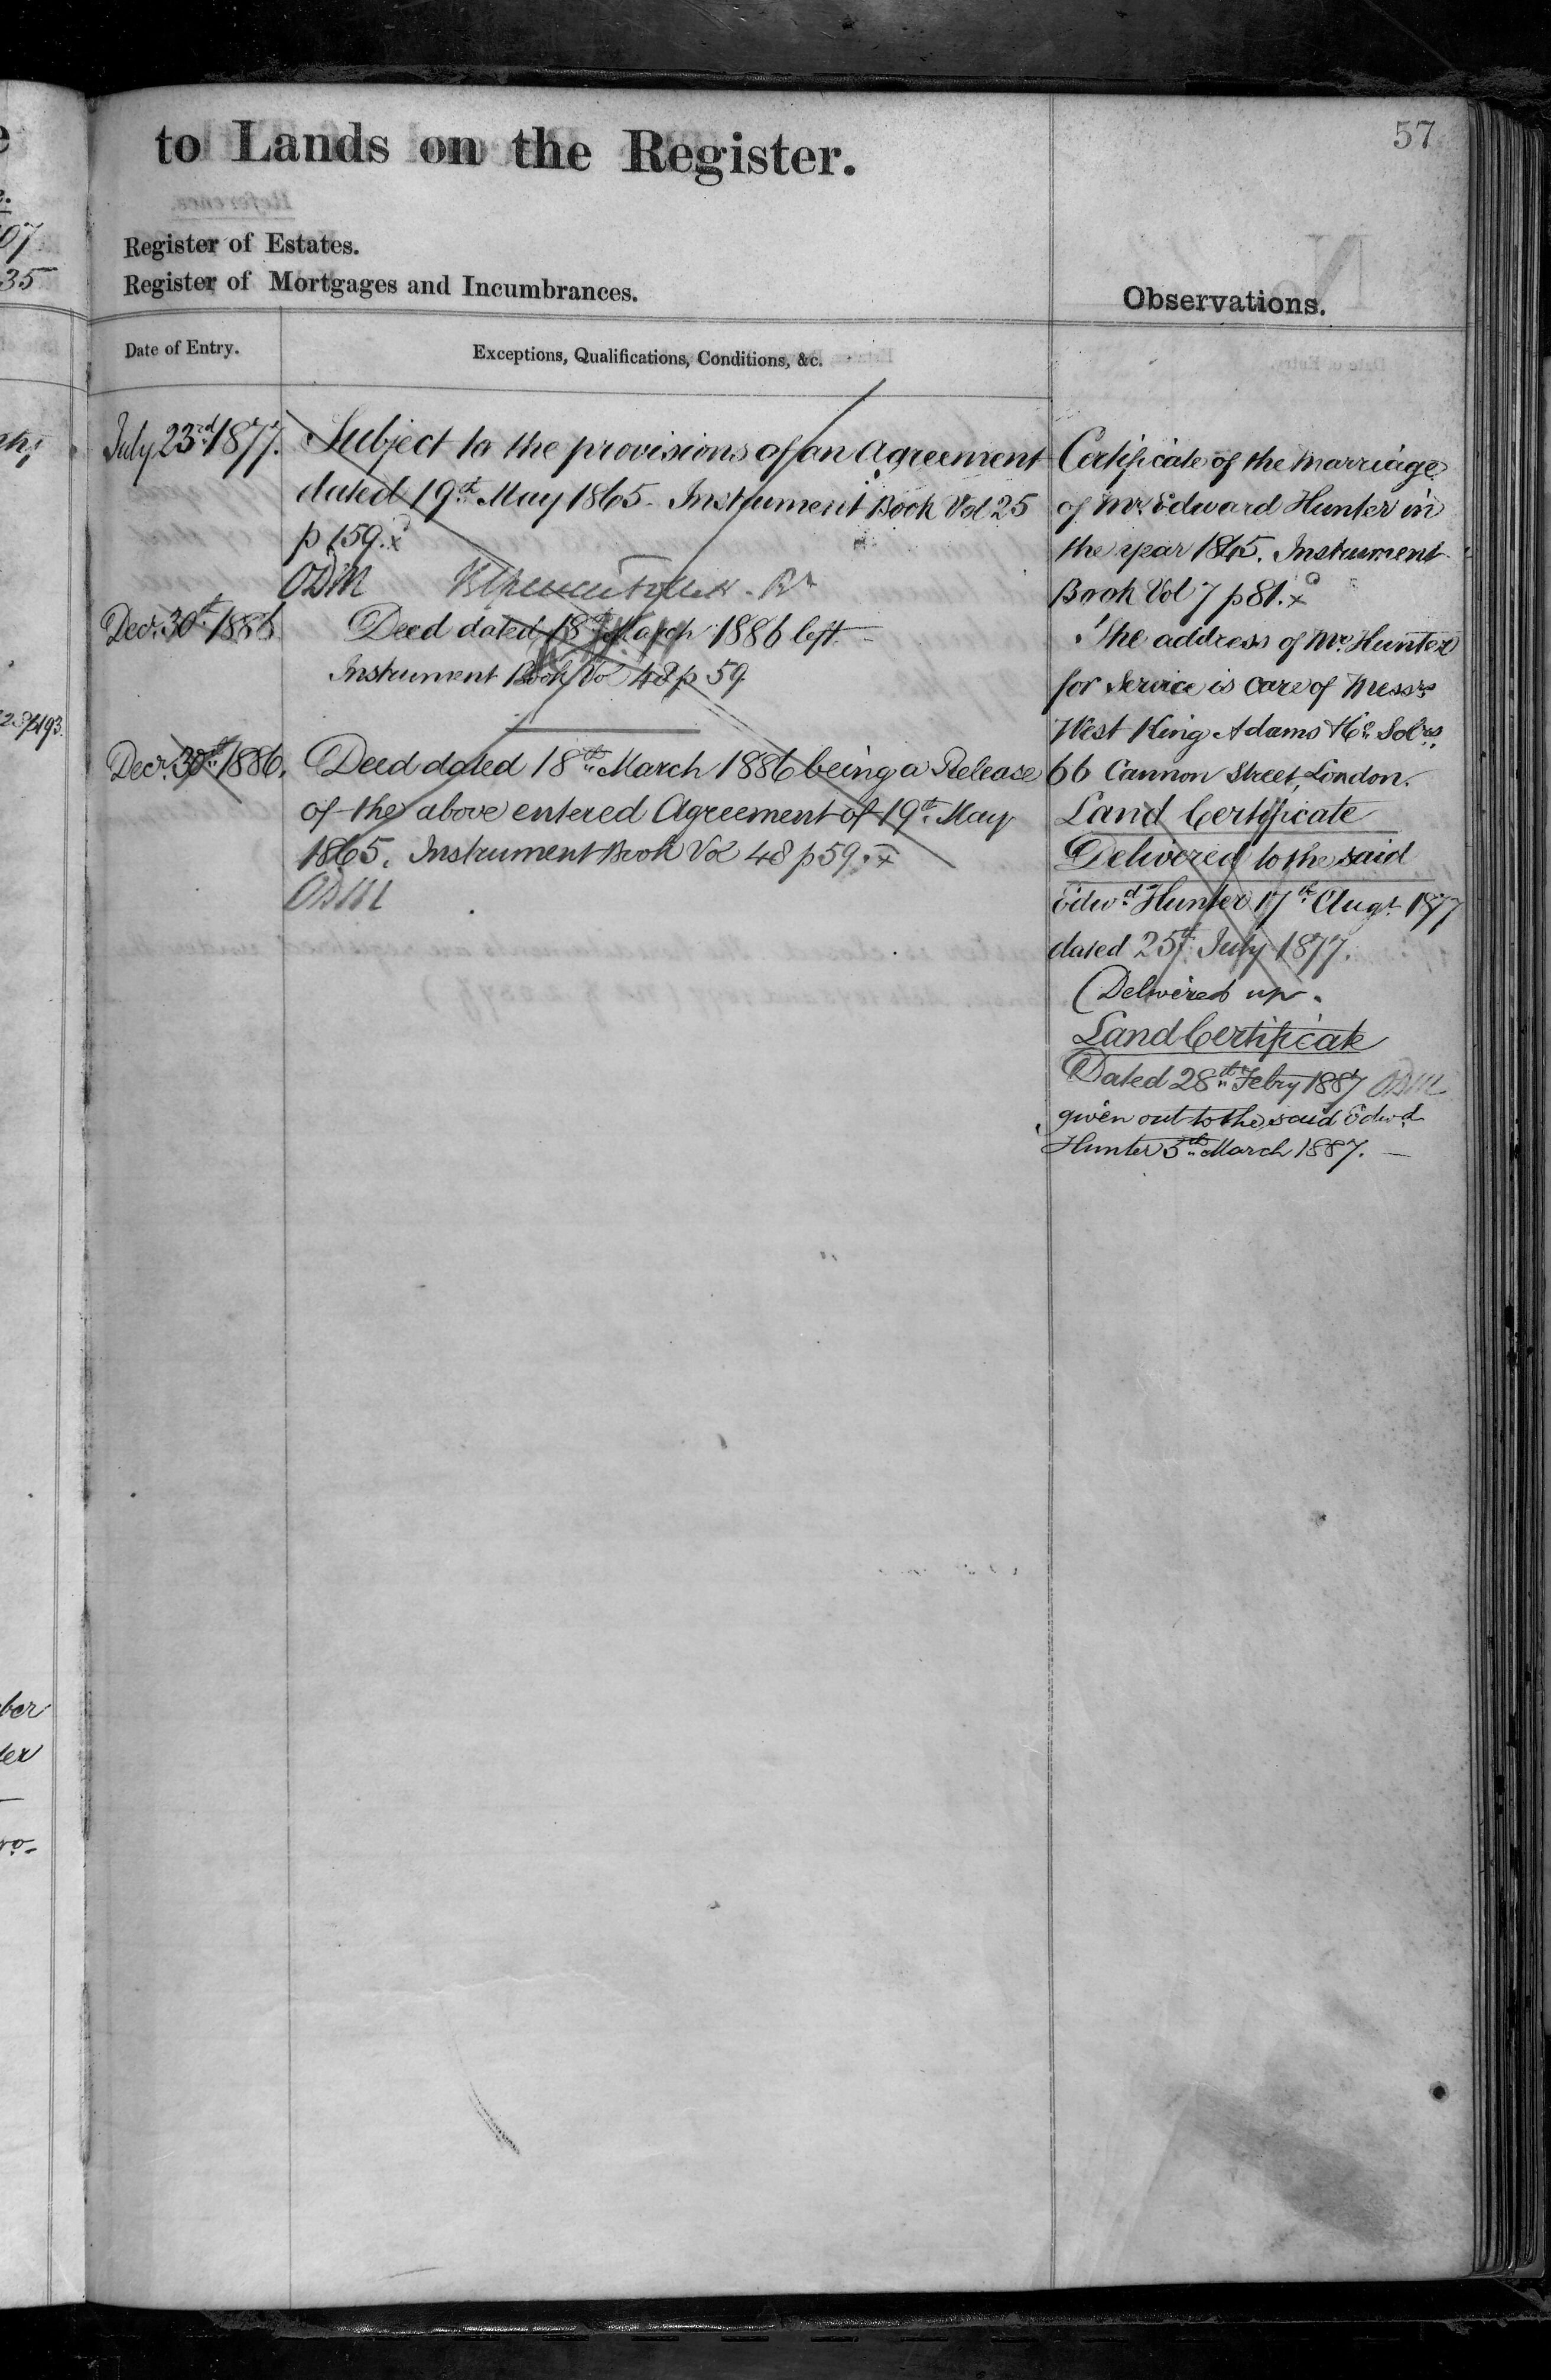 57
to Lands on the Register.
Register of Estates.
Register of Mortgages and Incumbrances.
Observations.
Date of Entry.
Exceptions, Qualifications, Conditions, &c.
July 23rd 1877.
Subject to the provisions of an Agreement
dated 19th May 1865. Instrument Book Vol 25
p 159. x
ODM
Decr. 30th 1886
Deed dated 18th March 1886 left
Instrument Book Vol 48 p 59
Decr. 30th 1886.
Deed dated 18th March 1886 being a Release
of the above entered Agreement of 19th May
1865. Instrument Book Vol 48 p 59. x
ODM
Certificate of the Marriage
of Mr. Edward Hunter in
the year 1865. Instrument
Book Vol 7 p 81. x
The address of Mr. Hunter
for Service is care of Messrs
West King Adams & Co. Solrs,
66 Cannon Street, London.
Land Certificate
Delivered to the said
Edwd Hunter 17th Augt 1877
dated 25th July 1877.
Delivered up.
Land Certificate
Dated 28th Febry 1887 ODM
given out to the said Edwd
Hunter 5th March 1887.
07
35
ber